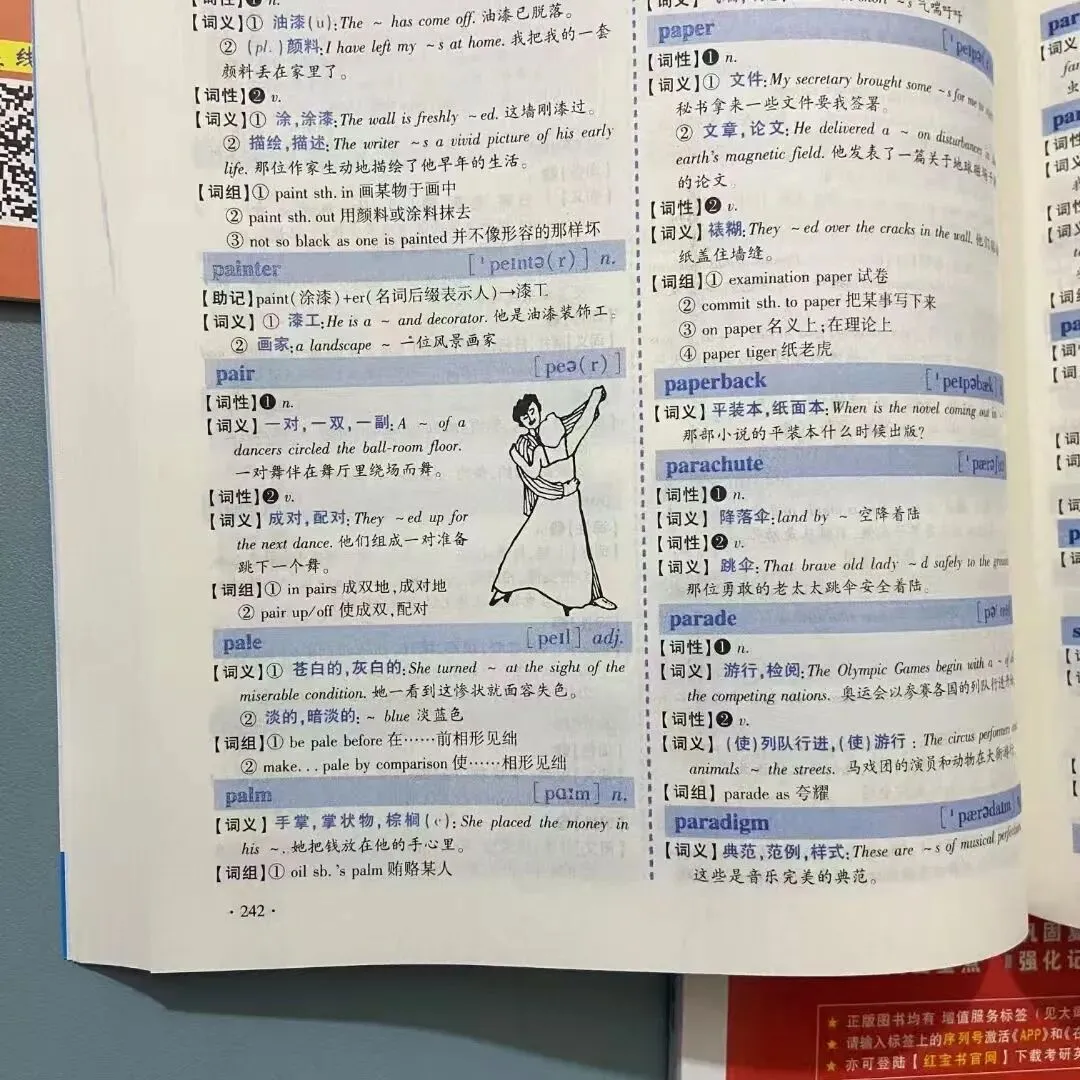 【词义】① 油漆(u):The ~ has come off. 油漆已脱落。
② (pl.)颜料:I have left my ~s at home. 我把我的一套
颜料丢在家里了。
【词性】❷ v.
【词义】① 涂,涂漆:The wall is freshly ~ed. 这墙刚漆过。
② 描绘,描述:The writer ~s a vivid picture of his early
life. 那位作家生动地描绘了他早年的生活。
【词组】① paint sth. in 画某物于画中
② paint sth. out 用颜料或涂料抹去
③ not so black as one is painted 并不像形容的那样坏
painter [ˈpeɪntə(r)] n.
【助记】paint(涂漆)+er(名词后缀表示人)→漆工
【词义】① 漆工:He is a ~ and decorator. 他是油漆装饰工。
② 画家:a landscape ~ 一位风景画家
pair [peə(r)]
【词性】❶ n.
【词义】一对,一双,一副:A ~ of a
dancers circled the ball-room floor.
一对舞伴在舞厅里绕场而舞。
【词性】❷ v.
【词义】成对,配对:They ~ed up for
the next dance. 他们组成一对准备
跳下一个舞。
【词组】① in pairs 成双地,成对地
② pair up/off 使成双,配对
pale [peɪl] adj.
【词义】① 苍白的,灰白的:She turned ~ at the sight of the
miserable condition. 她一看到这惨状就面容失色。
② 淡的,暗淡的:~ blue 淡蓝色
【词组】① be pale before 在……前相形见绌
② make... pale by comparison 使……相形见绌
palm [pɑːm] n.
【词义】手掌,掌状物,棕榈(c):She placed the money in
his ~. 她把钱放在他的手心里。
【词组】① oil sb.'s palm 贿赂某人
· 242 ·
~s 气喘吁吁
paper [ˈpeɪpə
【词性】❶ n.
【词义】① 文件:My secretary brought some ~s for me to
秘书拿来一些文件要我签署。
② 文章,论文:He delivered a ~ on disturbances in
earth's magnetic field. 他发表了一篇关于地球磁场
的论文。
【词性】❷ v.
【词义】裱糊:They ~ed over the cracks in the wall. 他们
纸盖住墙缝。
【词组】① examination paper 试卷
② commit sth. to paper 把某事写下来
③ on paper 名义上;在理论上
④ paper tiger 纸老虎
paperback [ˈpeɪpəbæk]
【词义】平装本,纸面本:When is the novel coming out in
那部小说的平装本什么时候出版?
parachute [ˈpærəʃu
【词性】❶ n.
【词义】降落伞:land by ~ 空降着陆
【词性】❷ v.
【词义】跳伞:That brave old lady ~d safely to the
那位勇敢的老太太跳伞安全着陆。
parade [pəˈreɪd
【词性】❶ n.
【词义】游行,检阅:The Olympic Games begin with a ~ of
the competing nations. 奥运会以参赛各国的列队行进
【词性】❷ v.
【词义】(使)列队行进,(使)游行:The circus performers
animals ~ the streets. 马戏团的演员和动物在大街
【词组】parade as 夸耀
paradigm [ˈpærədaɪm]
【词义】典范,范例,样式:These are ~s of musical
这些是音乐完美的典范。
强化记
★ 正版图书均有 增值服务标签(见大
★ 请输入标签上的序列号激活《APP》和《在
★ 亦可登陆【红宝书官网】下载考研英